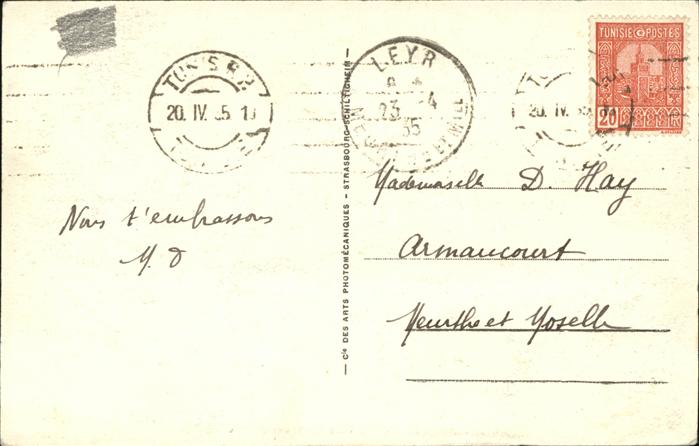 TUNIS R.P.
20. IV. 35
LEYR
23 - 4
35
20. IV.
TUNISIE POSTES
20
Nous t'embrassons
M. D
Cie DES ARTS PHOTOMÉCANIQUES - STRASBOURG-SCHILTIGHEIM -
Mademoiselle D. Hay
Armaucourt
Meurthe et Moselle